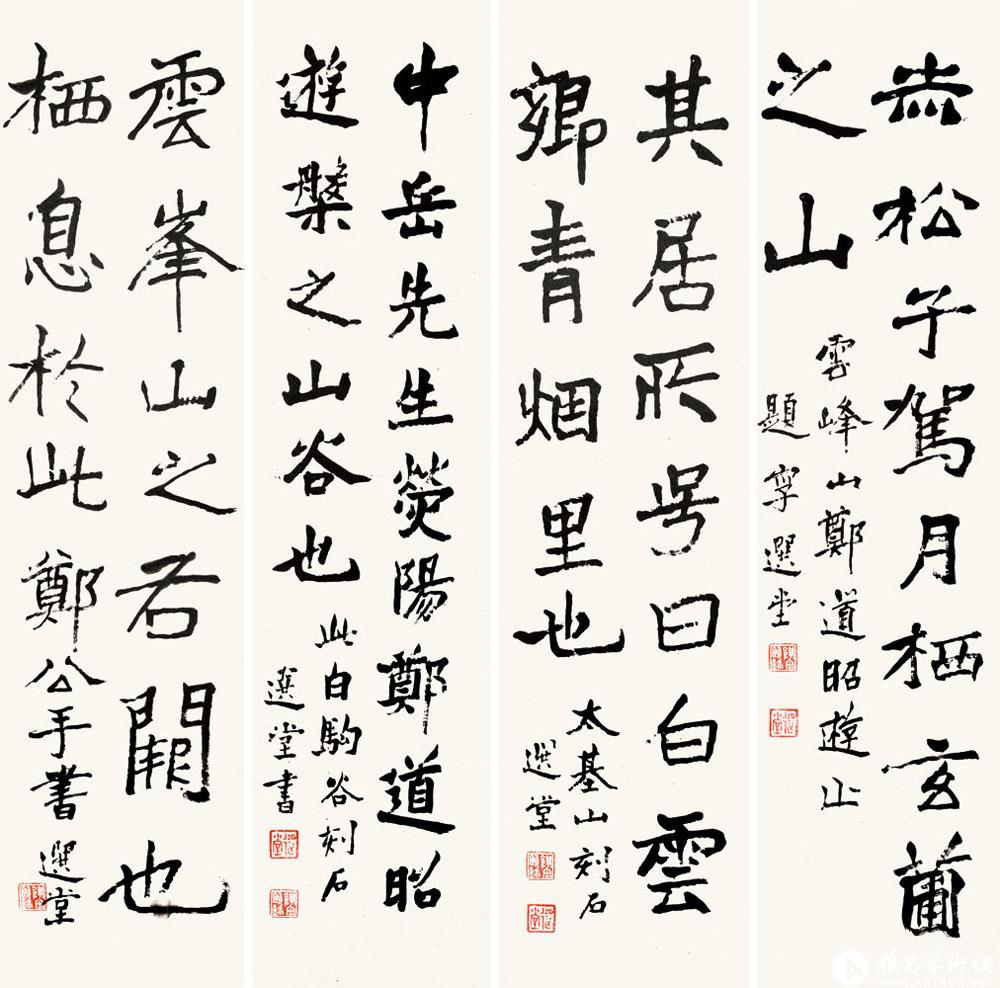 赤松子駕月栖玄圃
之山
雲峰山鄭道昭遊止
題字選堂
其居所号曰白雲
鄉青烟里也
太基山刻石
選堂
中岳先生熒陽鄭道昭
遊槃之山谷也
此白駒谷刻石
選堂書
雲峯山之右闕也
栖息於此鄭公手書選堂
雅昌艺術網
WWW.ARTRON.NET